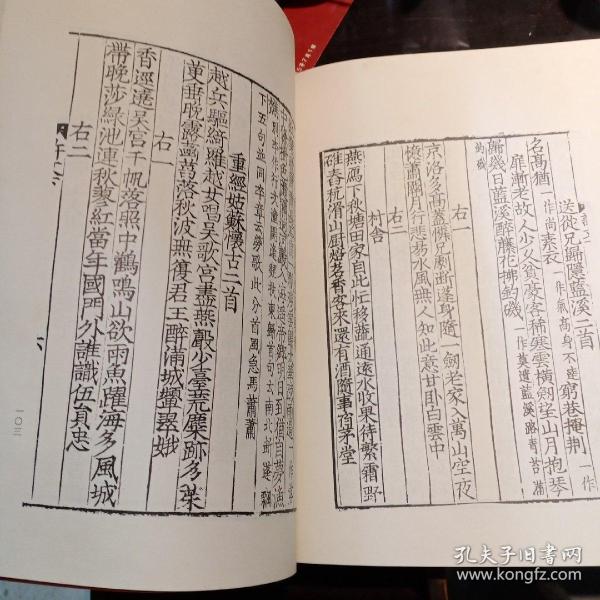 送從兄歸隱藍溪二首
名髙猶一作尚素衣一作氣高身不達窮巷掩荆一作
扉漸老故人少久貧豪客稀寒雲橫劍望山月抱琴
歸幾日藍溪醉藤花拂釣磯一作莫遣藍溪路青苔滿
釣磯
右一
京洛多髙蓋憐兄劇斷蓬身隨一劍老家入萬山空夜
憶蕭關月行悲易水風無人知此意甘卧白雲中
右二
村舎
燕鴈下秋塘田家自此忙移蔬通遠水收果待繁霜野
碓舂秔滑山厨焙茗香客來還有酒隨事宿茅堂
下五句並同
重經姑蘇懷古二首
越兵驅綺羅越女唱吳歌宮盡燕聲少臺荒麋跡多茱
萸垂曉露菡萏落秋波無復君王醉滿城嚬翠娥
右一
香逕遶吳宮千帆落照中鸛鳴山欲雨魚躍海多風城
帶晚莎綠池連秋蓼紅當年國門外誰識伍貟忠
右二
一〇三
孔夫子旧书网
www.kongfz.com